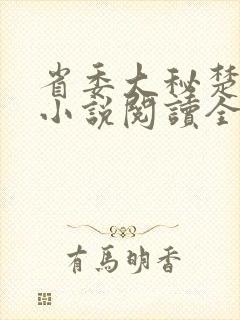 省委大秘楚
小說閱讀全
有馬明香